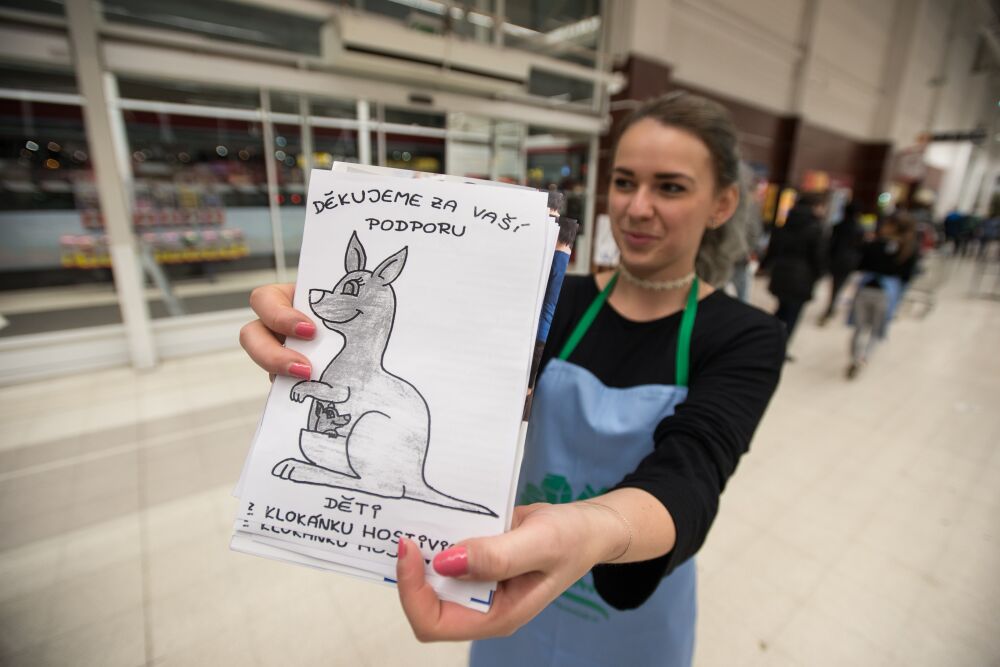 DĚKUJEME ZA VAŠÍ
PODPORU
DĚTI
Z KLOKÁNKU HOSTIVIC
KLOKÁNKU